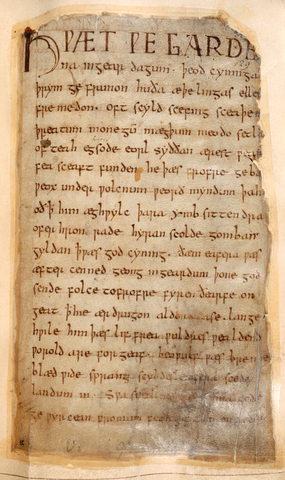 HǷÆT ǷE GARDE
na ingear dagum . þeod cyninga
þrym ge frunon huða æþelingas elle
fre medon . oft scyld scefing sceaþe
þreatum monegū mægþum meodo setla
of teah egsode eorl syððan ærest ƿear
fea sceaft funden he þæs frofre geba
ƿeox under ƿolcnum ƿeorð myndum þah
oð ꝥ him æghƿylc þara ymb sittendra
ofer hron rade hyran scolde gomban
gyldan ꝥ ƿæs god cyning . ðæm eafera ƿæs
æfter cenned geong ingeardum þone god
sende folce tofrofre fyren ðearfe on
geat ꝥ hie ær drugon aldor ase . lange
hƿile him þæs liffrea ƿuldres ƿealdend
ƿorold are for geaf . beoƿulf ƿæs breme
blæd ƿide sprang scyldes eafera scede
landum in . Sƿa sceal uma gode
ge ƿyrcean fromum feoh giftum